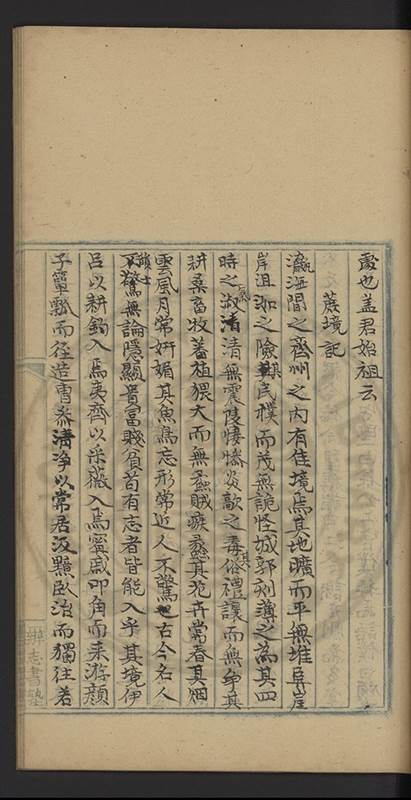 處也蓋君始祖云
蔗境記
瀛海間之齊州之内有佳境焉其地曠而平無堆阜崖
岸沮洳之險其民樸而茂無詭怪城郭刻薄之為其四
時之淑清無震陵悽慘炎歊之毒其俗禮讓而無爭其
耕桑畜牧蕃植猥大而無蟊賊瘯蠡其花卉常春其烟
雲風月常妍媚其魚鳥忘形常近人不驚也古今名人
碩士無論隱顯貴富賤貧苟有志者皆能入乎其境伊
呂以耕釣入焉夷齊以采薇入焉甯戚叩角而來游顏
子簞瓢而徑造曹參清净以常居汲黯臥治而獨往若
辨志書塾